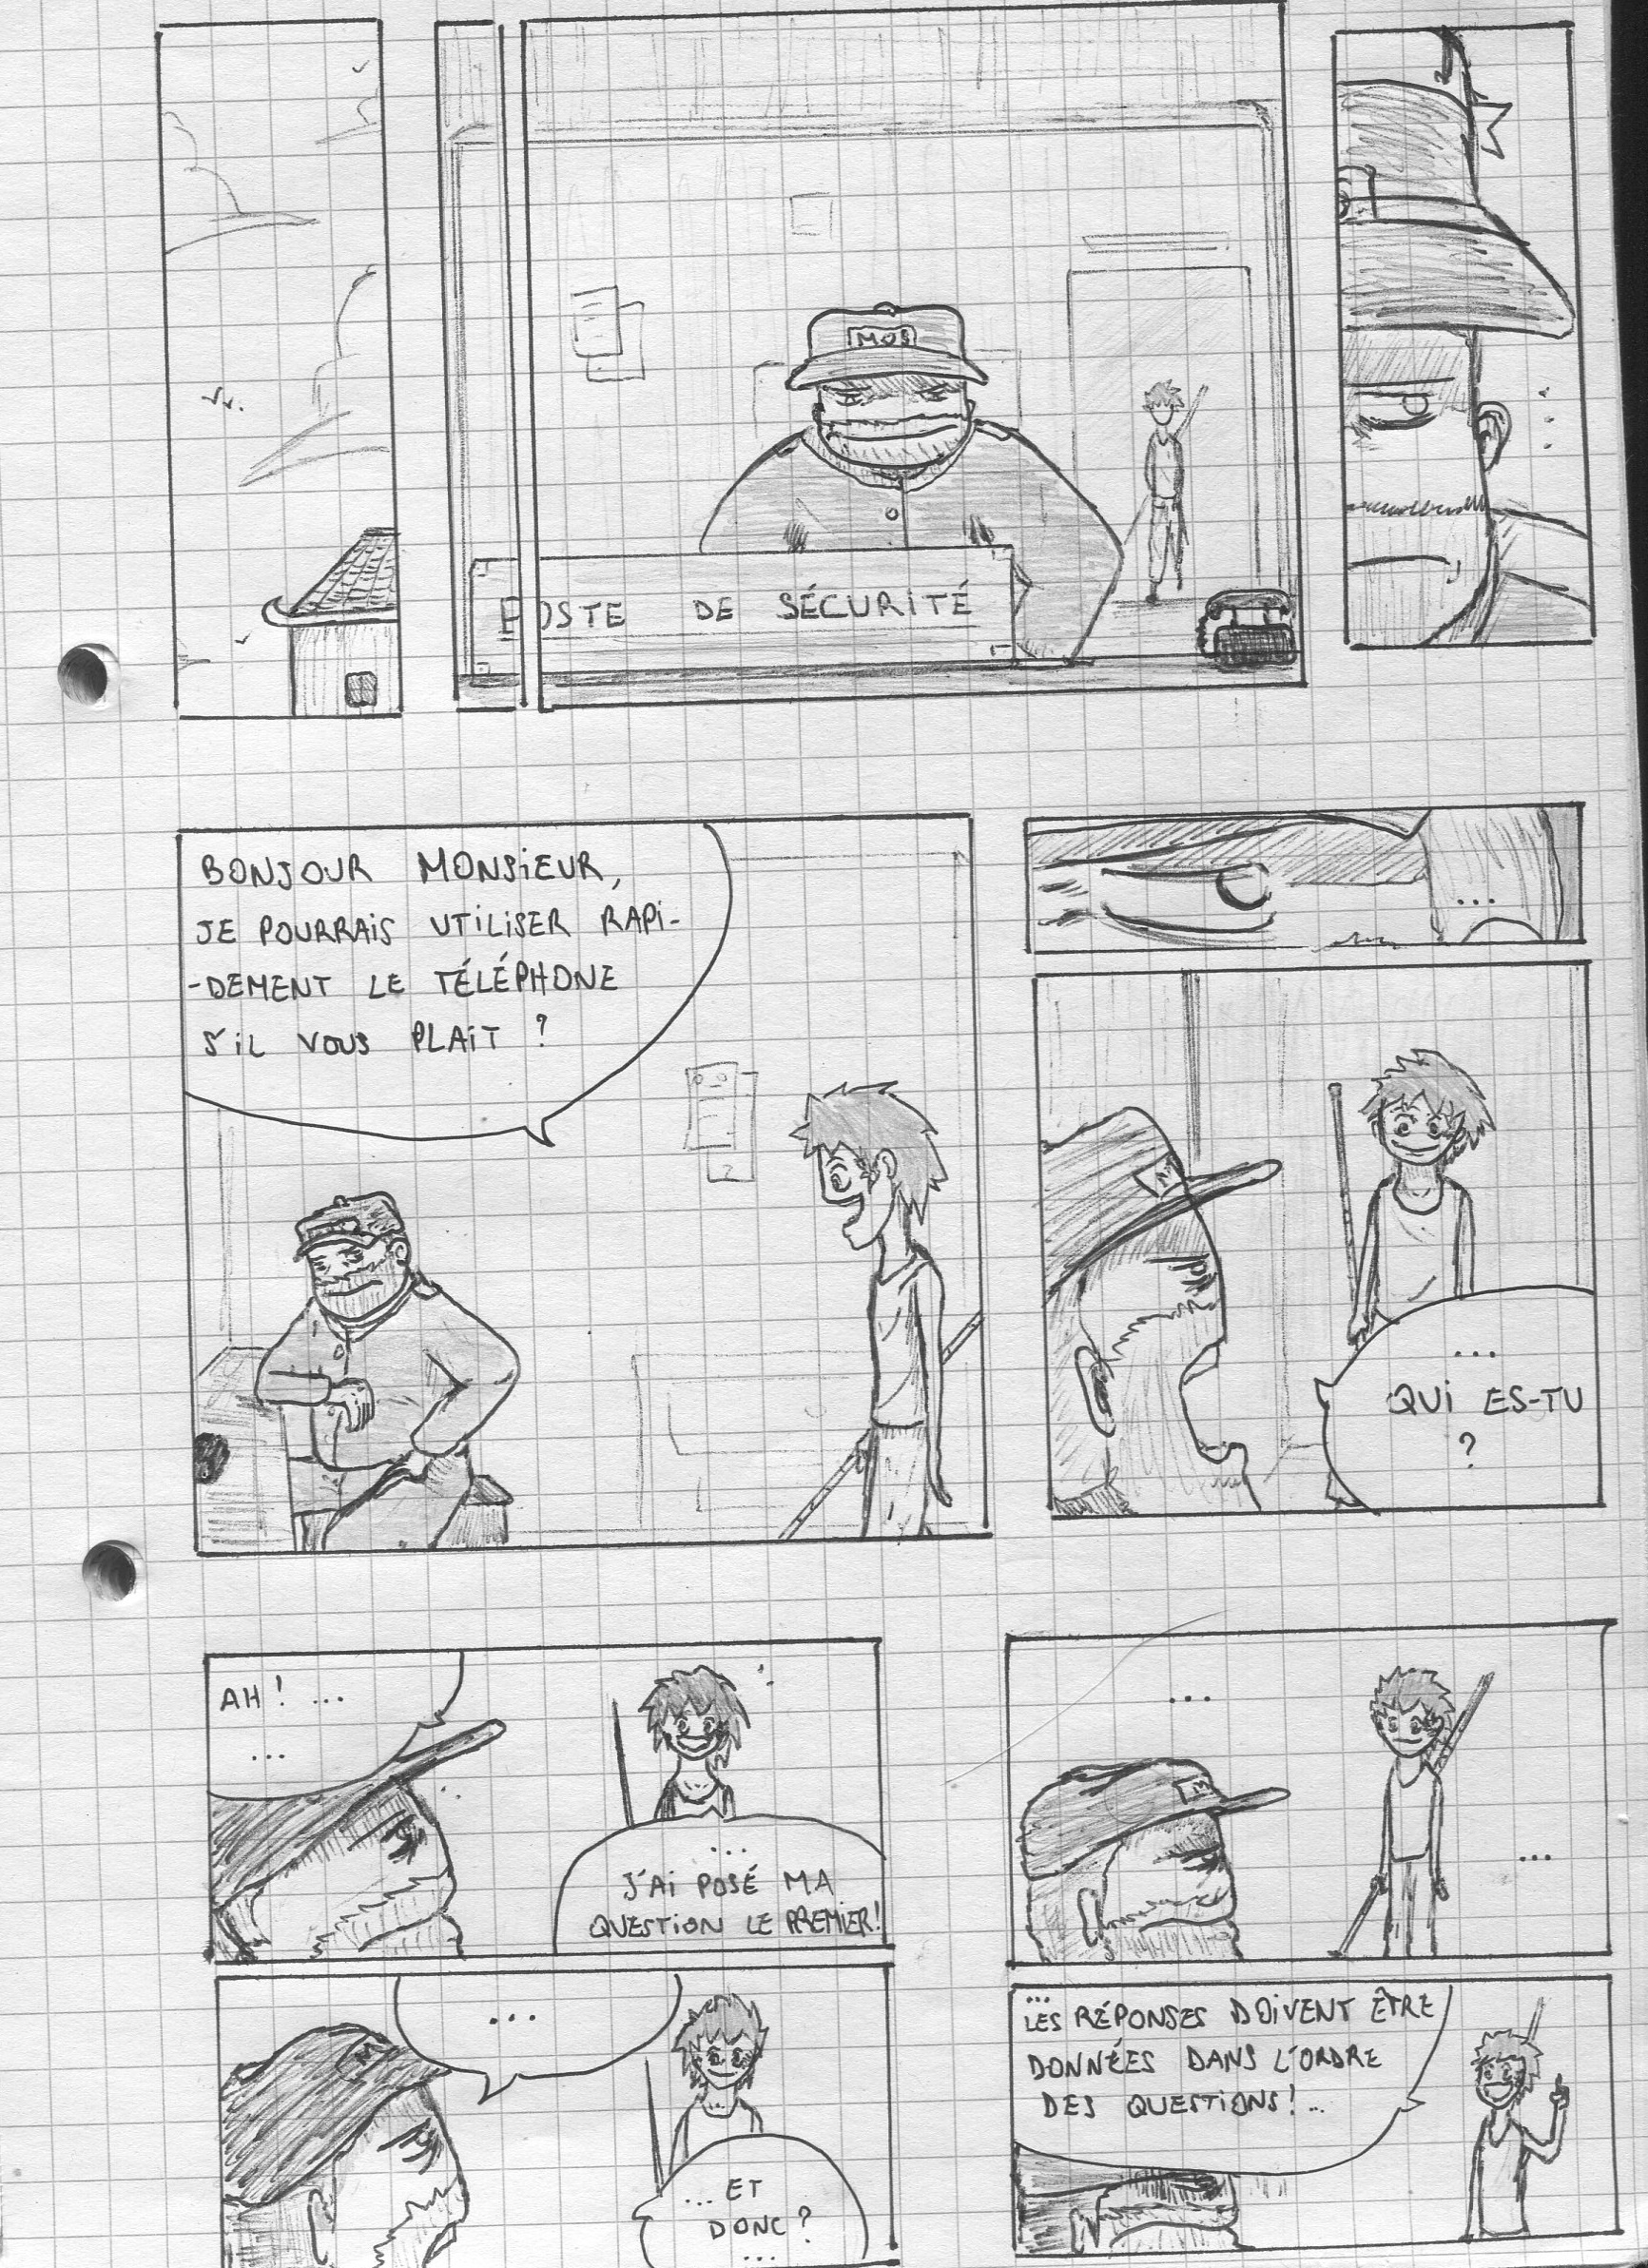 MOS
POSTE DE SÉCURITÉ
BONJOUR MONSIEUR,
JE POURRAIS UTILISER RAPI-
-DEMENT LE TÉLÉPHONE
S'IL VOUS PLAIT ?
...
...
QUI ES-TU
?
AH! ...
...
...
J'AI POSÉ MA
QUESTION LE PREMIER!
...
...
...
... ET
DONC ?
...
...
LES RÉPONSES DOIVENT ÊTRE
DONNÉES DANS L'ORDRE
DES QUESTIONS! ..